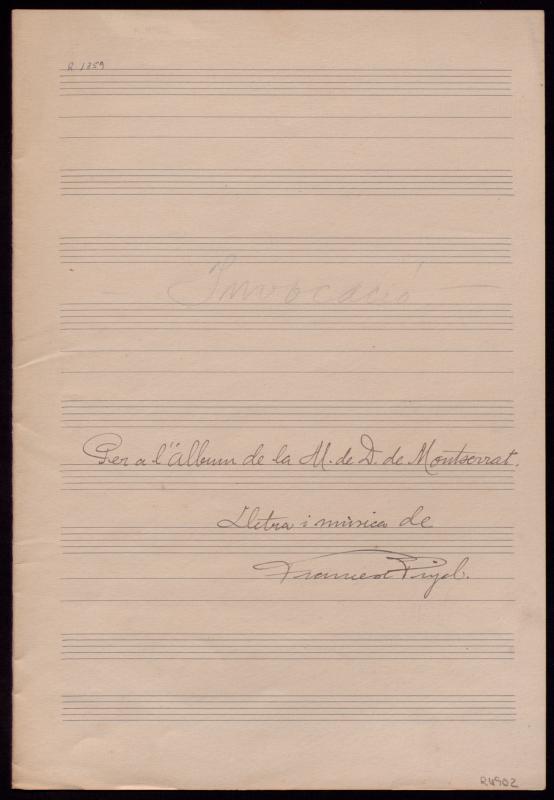 R 1359
- Invocació -
Per a l'"àlbum de la M. de D. de Montserrat.
Lletra i música de
Francesc Pujol.
R.4902